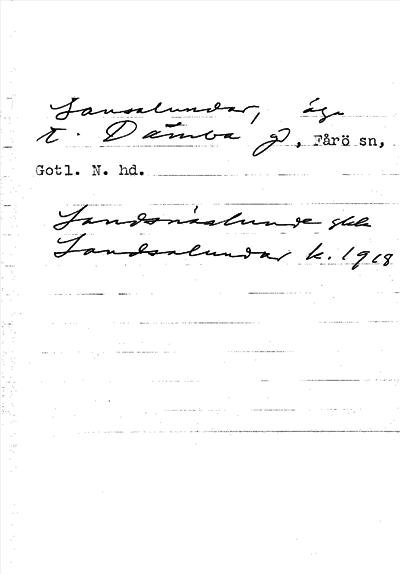 Sansalundar, äga
t. Dämba g, Fårö sn,
Gotl. N. hd.
Landsnäslunde
Landsalundar k. 1918